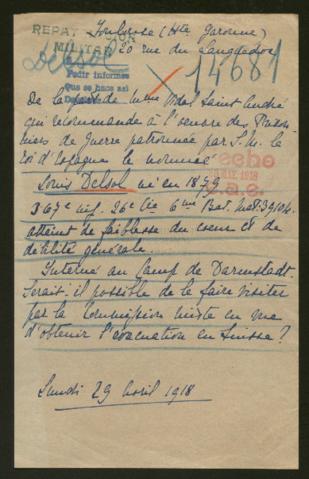 Toulouse (Hte Garonne)
20 rue du Languedoc
REPAT
MILITAR
Delsol
Pedir informes
Que se hace así
14681
De la part de Mme Vidal Saint André
qui recommande à l'œuvre des Prison-
niers de Guerre patronnée par S. M. le
roi d'Espagne le nommé
hecho
1918
Louis Delsol né en 1879
367e inf. 26e Cie 6me Bat. Mat.
atteint de faiblesse du cœur et de
débilité générale.
Interné au Camp de Darmstadt.
Serait-il possible de le faire visiter
par la Commission mixte en vue
d'obtenir l'évacuation en Suisse?
Lundi 29 Avril 1918